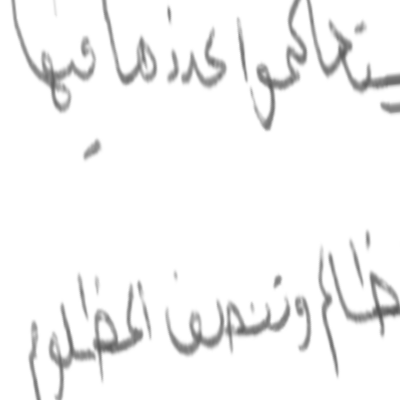 يتحاكموا عندها فيها
ظالم وتنصف المظلوم